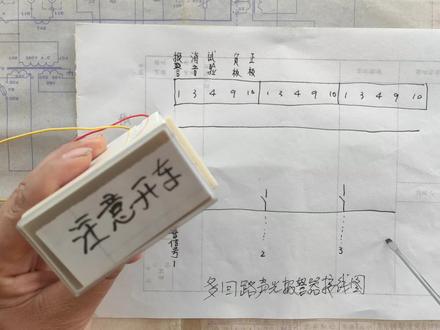 报警 消音 试验 负极 正极
1 3 4 9 10 1 3 4 9 10 1 3 4 9 10
注意开车
信号1
2
3
多回路声光报警器接线图